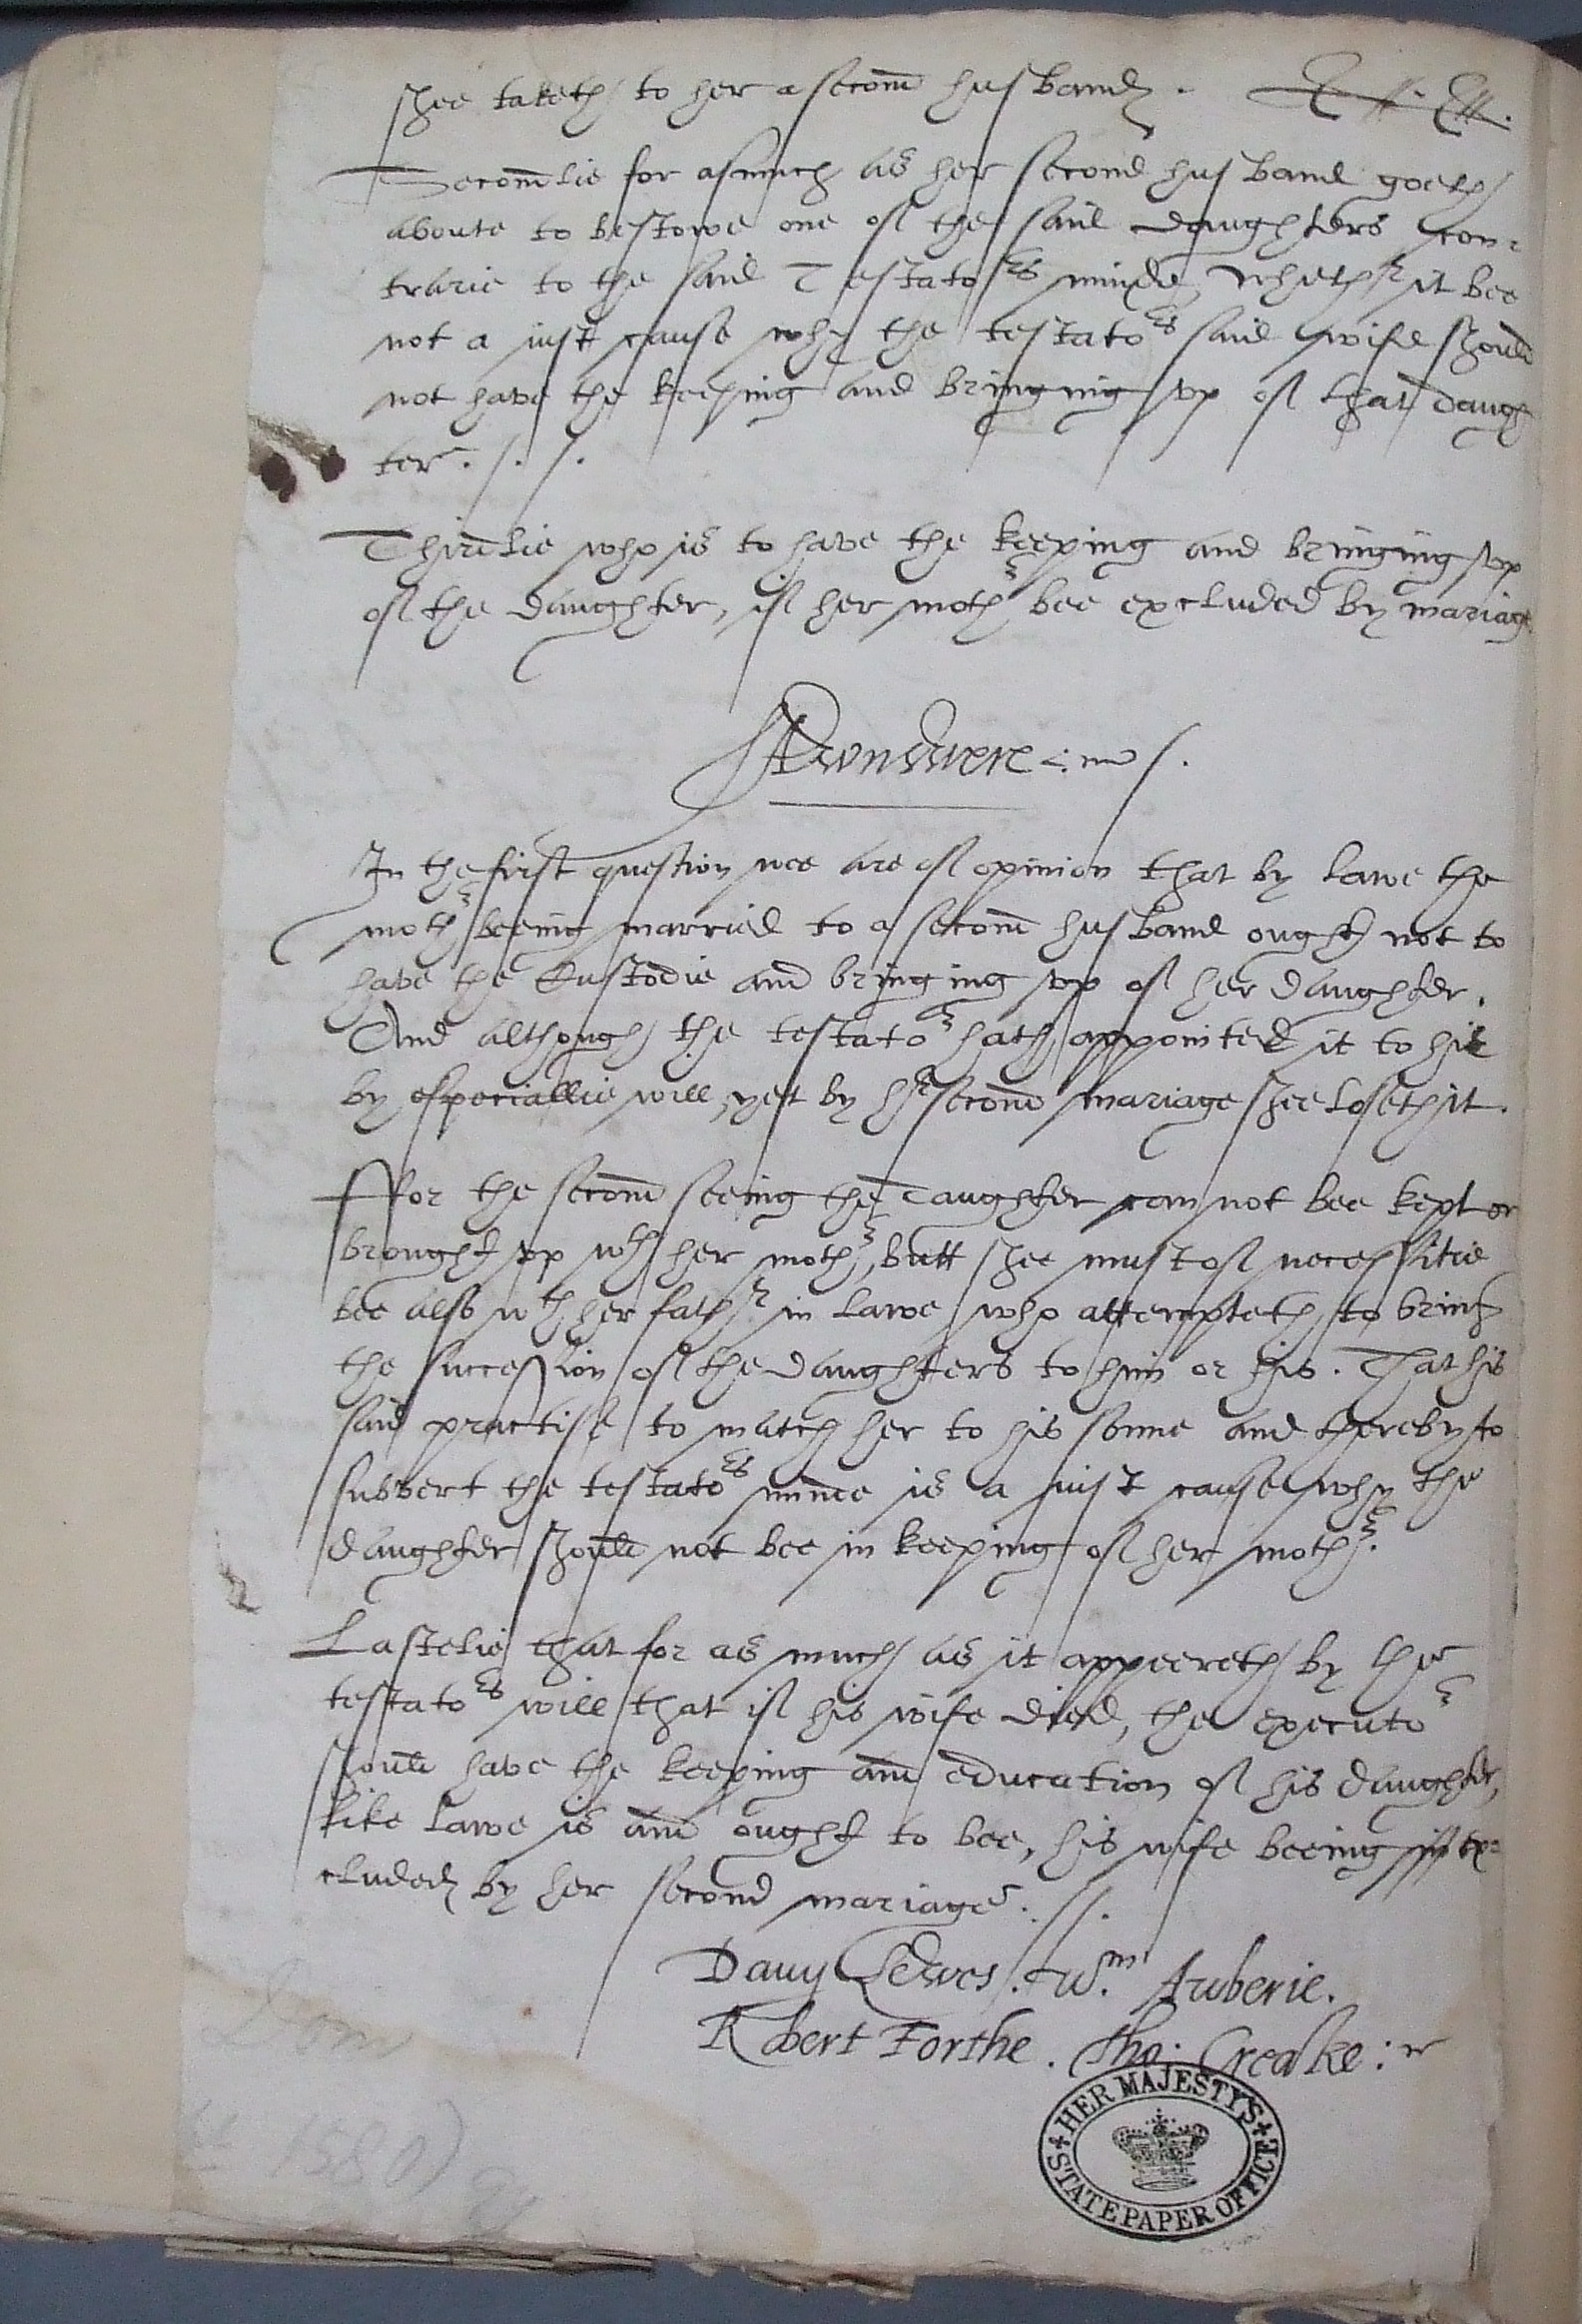 shee taketh to her a second husband.
Secondlie for asmuch as her second husband goeth
aboute to bestowe one of the said daughters con=
trarie to the said Testato^rs minde, wheth^r it bee
not a iust cause why the testato^rs said wife should
not have the keeping and bringing vp of that daugh
ter . / . / .
Thirdlie who is to have the keeping and bringing vp
of the daughter, if her moth^r bee excluded by mariage.
Awnswere
In the first question wee are of opinion that by lawe the
moth^r beeing married to a second husband ought not to
have the Custodie and bringing vp of her daughter.
And although the testato^r hath appointed it to hir
by especiallie will, yet by h^r second mariage shee loseth it.
Ffor the second seeing the Daughter can not bee kept or
brought vp w^th her moth^r, butt shee must of necessitie
bee also w^th her fath^r in lawe who attempteth to bring
the succession of the daughters to him or his. That his
said practise to match her to his sonne and thereby to
subvert the testato^rs minde is a iust cause why the
daughter should not bee in keeping of her moth^r.
Lastelie that for as much as it appeereth by the
testato^rs will that if his wife died, the executo^r
should have the keeping and education of his daughter,
like lawe is and ought to bee, his wife beeing ex=
cluded by her second mariage . / / .
Dauy Lewes . W^m. Awberie.
Robert Forthe . Tho: Creake :
HER MAJESTY'S
STATE PAPER OFFICE
Dom
1580